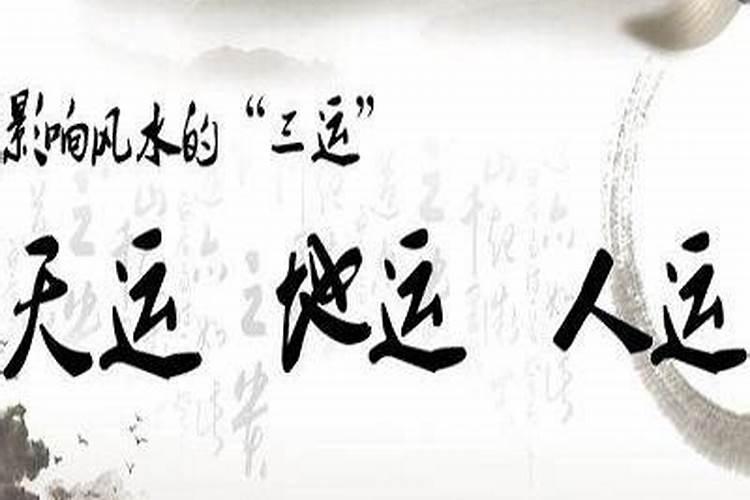 影响风水的“三运”
天运 地运 人运